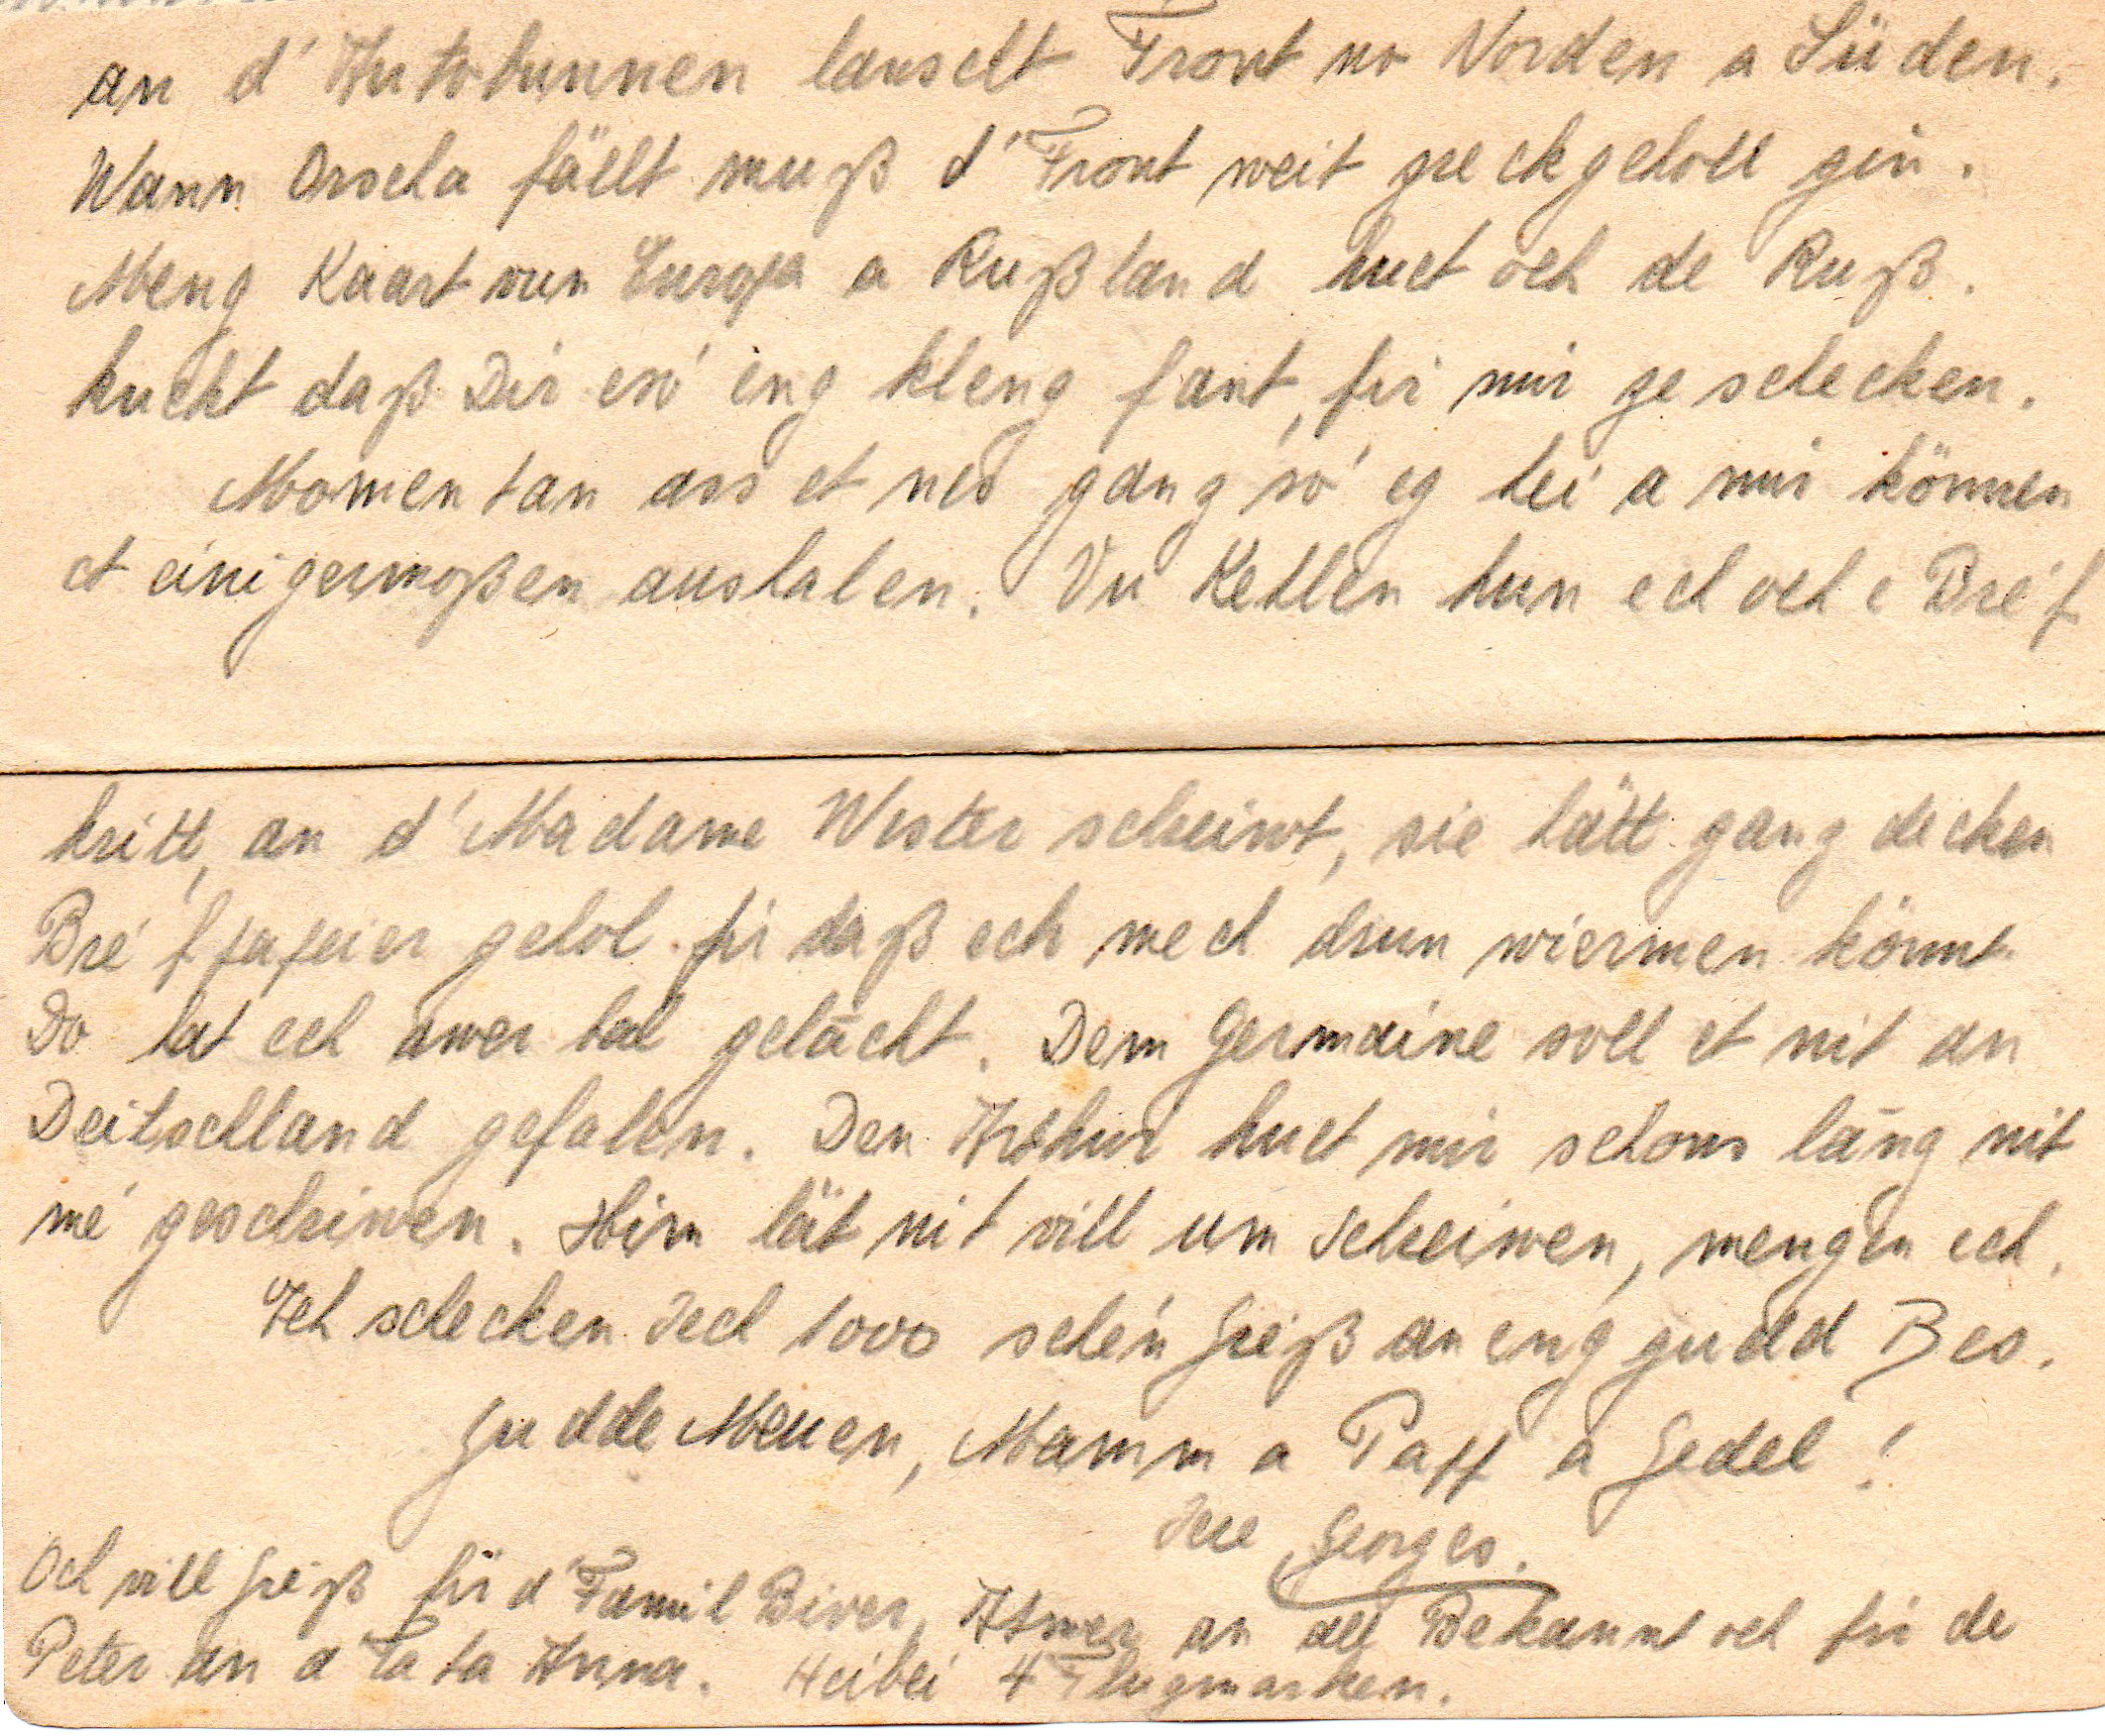 an d' Autobunnen lauscht Front vo Norden a Süden.
Wann Orscha fällt muß d' Front weit zreckgeholl gin.
Meng Kaart vun Europa a Rußland huet och de Ruß.
kuckt daß Dir eso' eng kleng fant, fir mir ze schecken.
Momentan ass et nês gang so' eg hei a mir können
et einigermoßen aushalen. Vu Ketten hun ech och e Bre'f
kritt, an d' Madame Wester schreiwt, sie hätt gang decken
Bre'fpapeier geholl fir daß ech mech drun wiermen könnt.
Do hat ech awer bal gelächt. Dem Germaine soll et nit an
Deitschland gefalen. Den Arthur huet mir schons läng nit
me' geschriwen. Him läit nit vill um Schreiwen, mengen ech.
Ich schecken Iech 1000 sche'n Greiß an eng gudd Bes.
Gudde Meuen, Mamm a Papp a Gedel!
Iere Georges.
Och vill Greiß fir d' Famil Biver, an all Bekannt och fir de
Peter an d' Tata Anna. Heibei 4 Flugmarken.